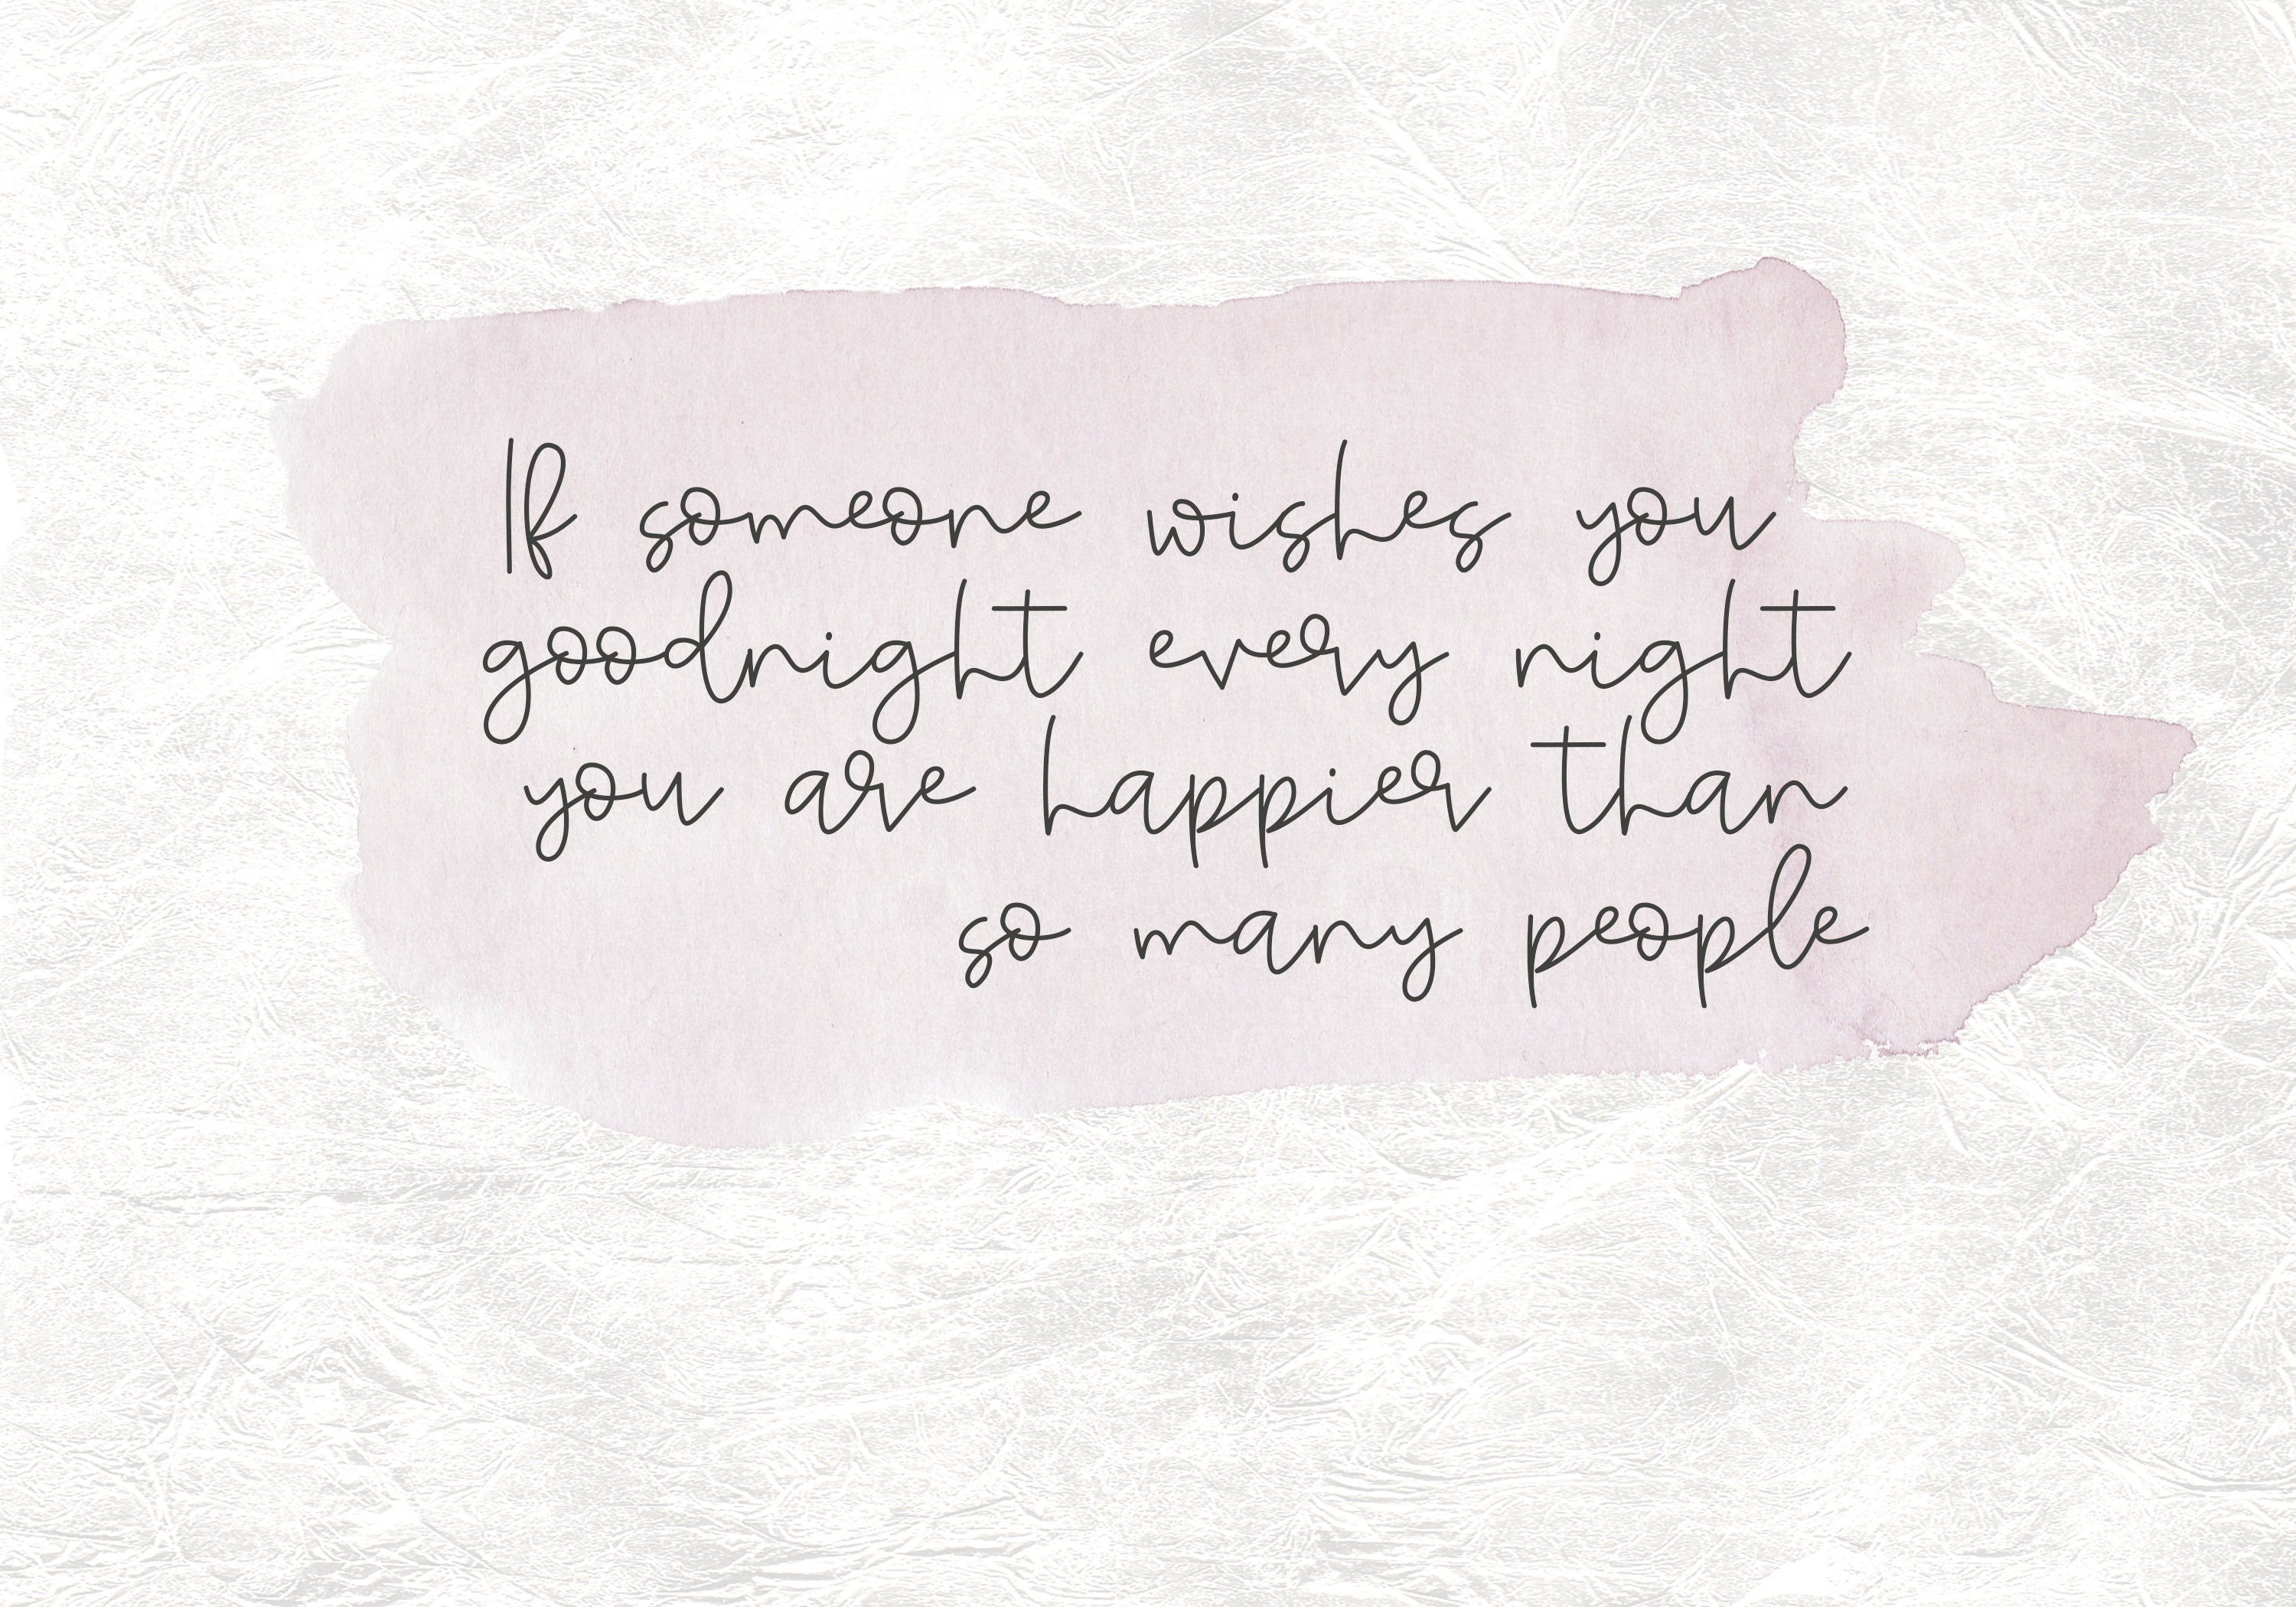 If someone wishes you
goodnight every night
you are happier than
so many people